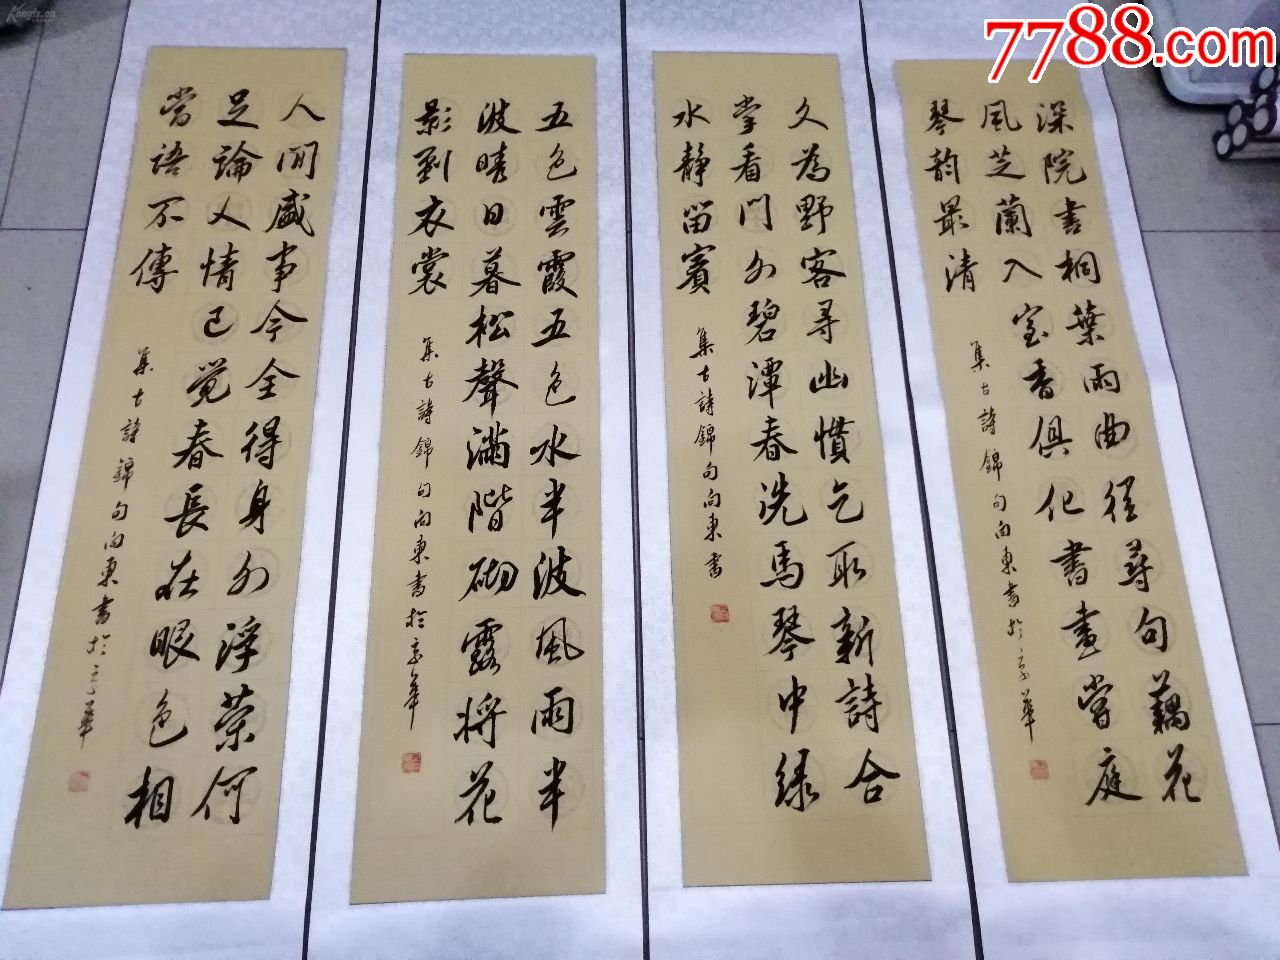 深院書桐葉雨曲徑尋句藕花
風芝蘭入室香俱化書畫當庭
琴韵最清
集古詩錦句向東書於京華
久為野客尋幽慣乞取新詩合
掌看門外碧潭春洗馬琴中緑
水靜留賓
集古詩錦句向東書
五色雲霞五色水半波風雨半
波晴日暮松聲滿階砌露將花
影到衣裳
集古詩錦句向東書於京華
人間盛事今全得身外浮榮何
足論人情已覺春長在眼色相
當語不傳
集古詩錦句向東書於京華
7788.com
Kongfz.cn